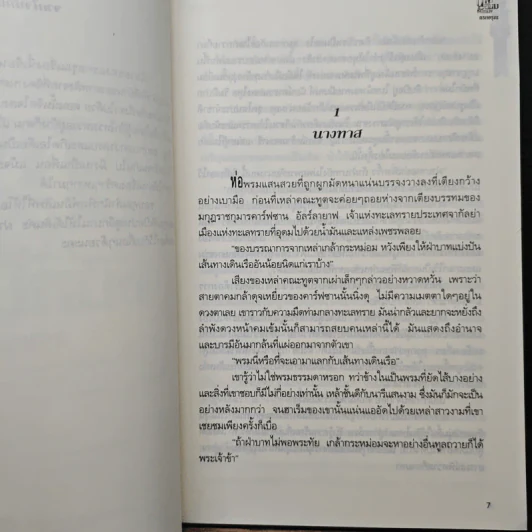 1
นางทาส
ห่อพรมแสนสวยที่ถูกผูกมัดหนาแน่นบรรจงวางลงที่เตียงกว้าง
อย่างเบามือ ก่อนที่เหล่าคณะทูตจะค่อยๆถอยห่างจากเตียงบรรทมของ
มกุฎราชกุมารคาร์ฟซาน อัลร์ลายาฟ เจ้าแห่งทะเลทรายประเทศจากัลย่า
เมืองแห่งทะเลทรายที่อุดมไปด้วยน้ำมันและแหล่งเพชรพลอย
"ของบรรณาการจากเหล่าเกล้ากระหม่อม หวังเพียงให้ฝ่าบาทแบ่งปัน
เส้นทางเดินเรืออันน้อยนิดแก่เราบ้าง"
เสียงของเหล่าคณะทูตจากเผ่าเล็กๆกล่าวอย่างหวาดหวั่น เพราะว่า
สายตาคมกล้าดุจเหยี่ยวของคาร์ฟซานนั้นนิ่งดุ ไม่มีความเมตตาใดๆอยู่ใน
ดวงตาเลย เขาราวกับความมืดท่ามกลางทะเลทราย มันน่ากลัวและยากจะหยั่งถึง
ลำพังดวงหน้าคมเข้มนั้นก็สามารถสยบคนเหล่านี้ได้ มันแสดงถึงอำนาจ
และบารมีอันมากล้นที่แผ่ออกมาจากตัวเขา
"พรมนี่หรือที่จะเอามาแลกกับเส้นทางเดินเรือ"
เขารู้ว่าไม่ใช่พรมธรรมดาหรอก ทว่าข้างในเป็นพรมที่ยัดไส้บางอย่าง
และสิ่งที่เขาชอบก็มีไม่กี่อย่างเท่านั้น เหล้าชั้นดีกับนารีแสนงาม ซึ่งมันก็มักจะเป็น
อย่างหลังมากกว่า จนฮาเร็มของเขานั้นแน่นแออัดไปด้วยเหล่าสาวงามที่เขา
เชยชมเพียงครั้งก็เบื่อ
"ถ้าฝ่าบาทไม่พอพระทัย เกล้ากระหม่อมจะหาอย่างอื่นทูลถวายก็ได้
พระเจ้าข้า"
7